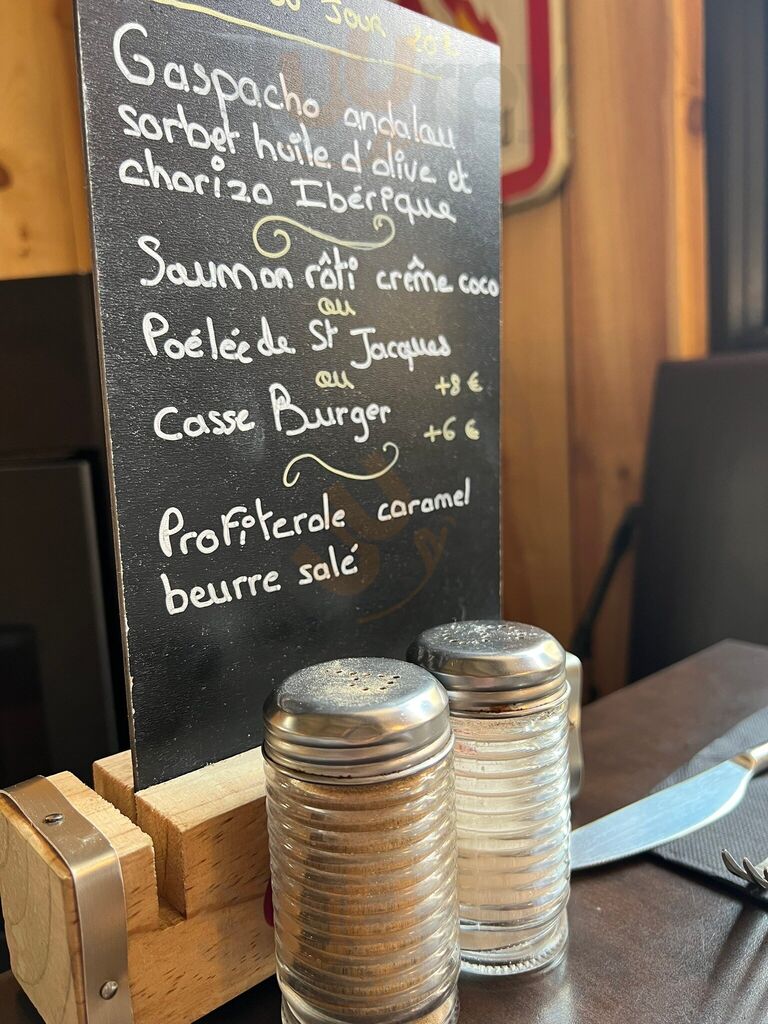 DU JOUR 20€
Gaspacho andalou
sorbet huile d'olive et
chorizo Ibérique
Saumon rôti crême coco
ou
Poélée de St Jacques
ou +8 €
Casse Burger +6 €
Profiterole caramel
beurre salé